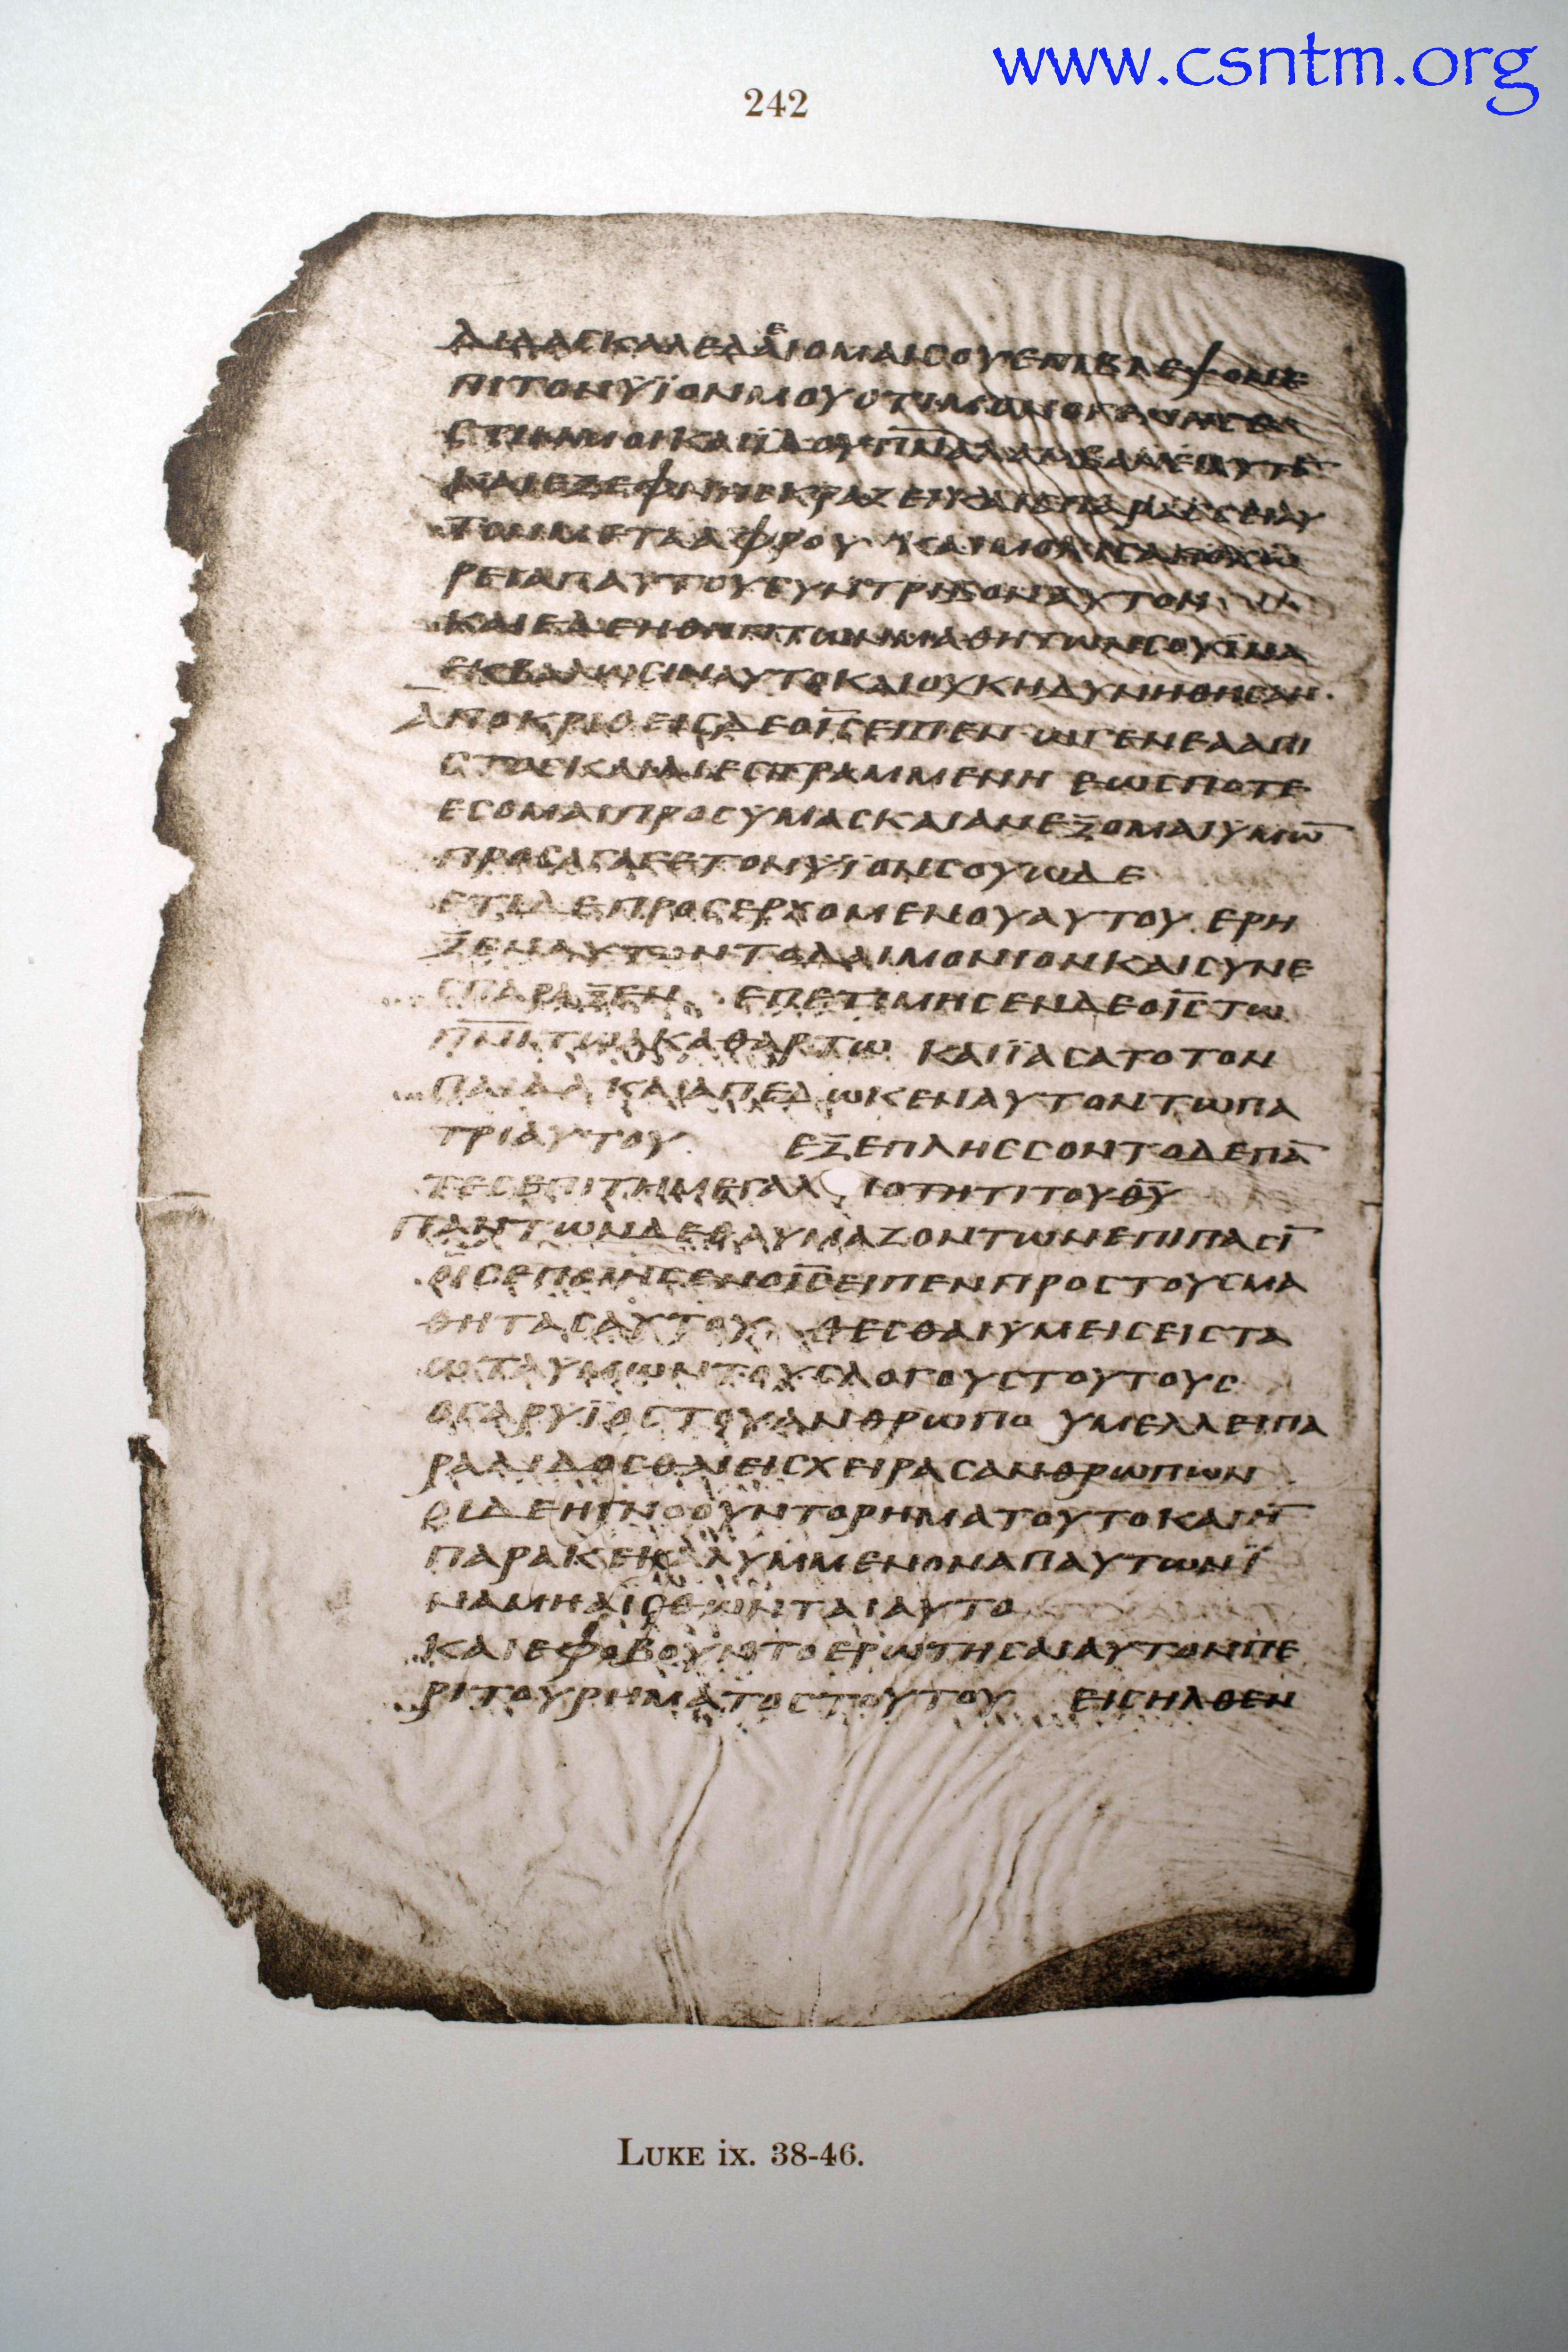 www.csntm.org
242
ΔΙΔΑCΚΑΛΕΔΕΙΟΜΑΙCΟΥΕΠΙΒΛΕΨΟΝΕ
ΠΙΤΟΝΥΪΟΝΜΟΥΟΤΙΜΟΝΟΓΕΝΗC
ΚΑΙΪΔΟΥΠ̅Ν̅Α̅ΛΑΜΒΑΝΕΙ
ΚΡΑΖΕΙΚΑΙ
ΤΟΝΜΕΤΑΑΦΡΟΥ ΚΑΙΜΟΛΙCΑΠΟΧΩ
ΡΕΙΑΠΑΥΤΟΥCΥΝΤΡΙΒΟΝΑΥΤΟΝ
ΚΑΙΕΔΕΗΘΗΝΤΩΝΜΑΘΗΤΩΝCΟΥΪΝΑ
ΕΚΒΑΛΩCΙΝΑΥΤΟΚΑΙΟΥΚΗΔΥΝΗΘΗCΑΝ·
ΑΠΟΚΡΙΘΕΙCΔΕΟΙ̅C̅ΕΙΠΕΝ ΩΓΕΝΕΑΑΠΙ
CΤΟCΚΑΙΔΙΕCΤΡΑΜΜΕΝΗ ΕΩCΠΟΤΕ
ΕCΟΜΑΙΠΡΟCΥΜΑCΚΑΙΑΝΕΞΟΜΑΙΥΜΩ̅
ΠΡΟCΑΓΑΓΕΤΟΝΥΪΟΝCΟΥΩΔΕ
ΕΤΙΔΕΠΡΟCΕΡΧΟΜΕΝΟΥΑΥΤΟΥ ΕΡΗ
ΞΕΝΑΥΤΟΝΤΟΔΑΙΜΟΝΙΟΝΚΑΙCΥΝΕ
CΠΑΡΑΞΕΝ ΕΠΕΤΙΜΗCΕΝΔΕΟΙ̅C̅ΤΩ
Π̅Ν̅Ι̅ΤΩΑΚΑΘΑΡΤΩ ΚΑΙΪΑCΑΤΟΤΟΝ
ΠΑΙΔΑ ΚΑΙΑΠΕΔΩΚΕΝΑΥΤΟΝΤΩΠΑ
ΤΡΙΑΥΤΟΥ ΕΞΕΠΛΗCCΟΝΤΟΔΕΠΑ̅
ΤΕCΕΠΙΤΗΜΕΓΑΛΙΟΤΗΤΙΤΟΥΘ̅Υ̅
ΠΑΝΤΩΝΔΕΘΑΥΜΑΖΟΝΤΩΝΕΠΙΠΑCΙ̅
ΟΙCΕΠΟΙΗCΕΝΟΙ̅C̅ΕΙΠΕΝΠΡΟCΤΟΥCΜΑ
ΘΗΤΑCΑΥΤΟΥ ΘΕCΘΑΙΥΜΕΙCΕΙCΤΑ
ΩΤΑΥΜΩΝΤΟΥCΛΟΓΟΥCΤΟΥΤΟΥC
ΟΓΑΡΥΪΟCΤΟΥΑΝΘΡΩΠΟΥΜΕΛΛΕΙΠΑ
ΡΑΔΙΔΟCΘΑΙΕΙCΧΕΙΡΑCΑΝΘΡΩΠΩΝ
ΟΙΔΕΗΓΝΟΟΥΝΤΟΡΗΜΑΤΟΥΤΟΚΑΙΗ̅
ΠΑΡΑΚΕΚΑΛΥΜΜΕΝΟΝΑΠΑΥΤΩΝΪ
ΝΑΜΗΑΙCΘΩΝΤΑΙΑΥΤΟ
ΚΑΙΕΦΟΒΟΥΝΤΟΕΡΩΤΗCΑΙΑΥΤΟΝΠΕ
ΡΙΤΟΥΡΗΜΑΤΟCΤΟΥΤΟΥ ΕΙCΗΛΘΕΝ
LUKE ix. 38-46.